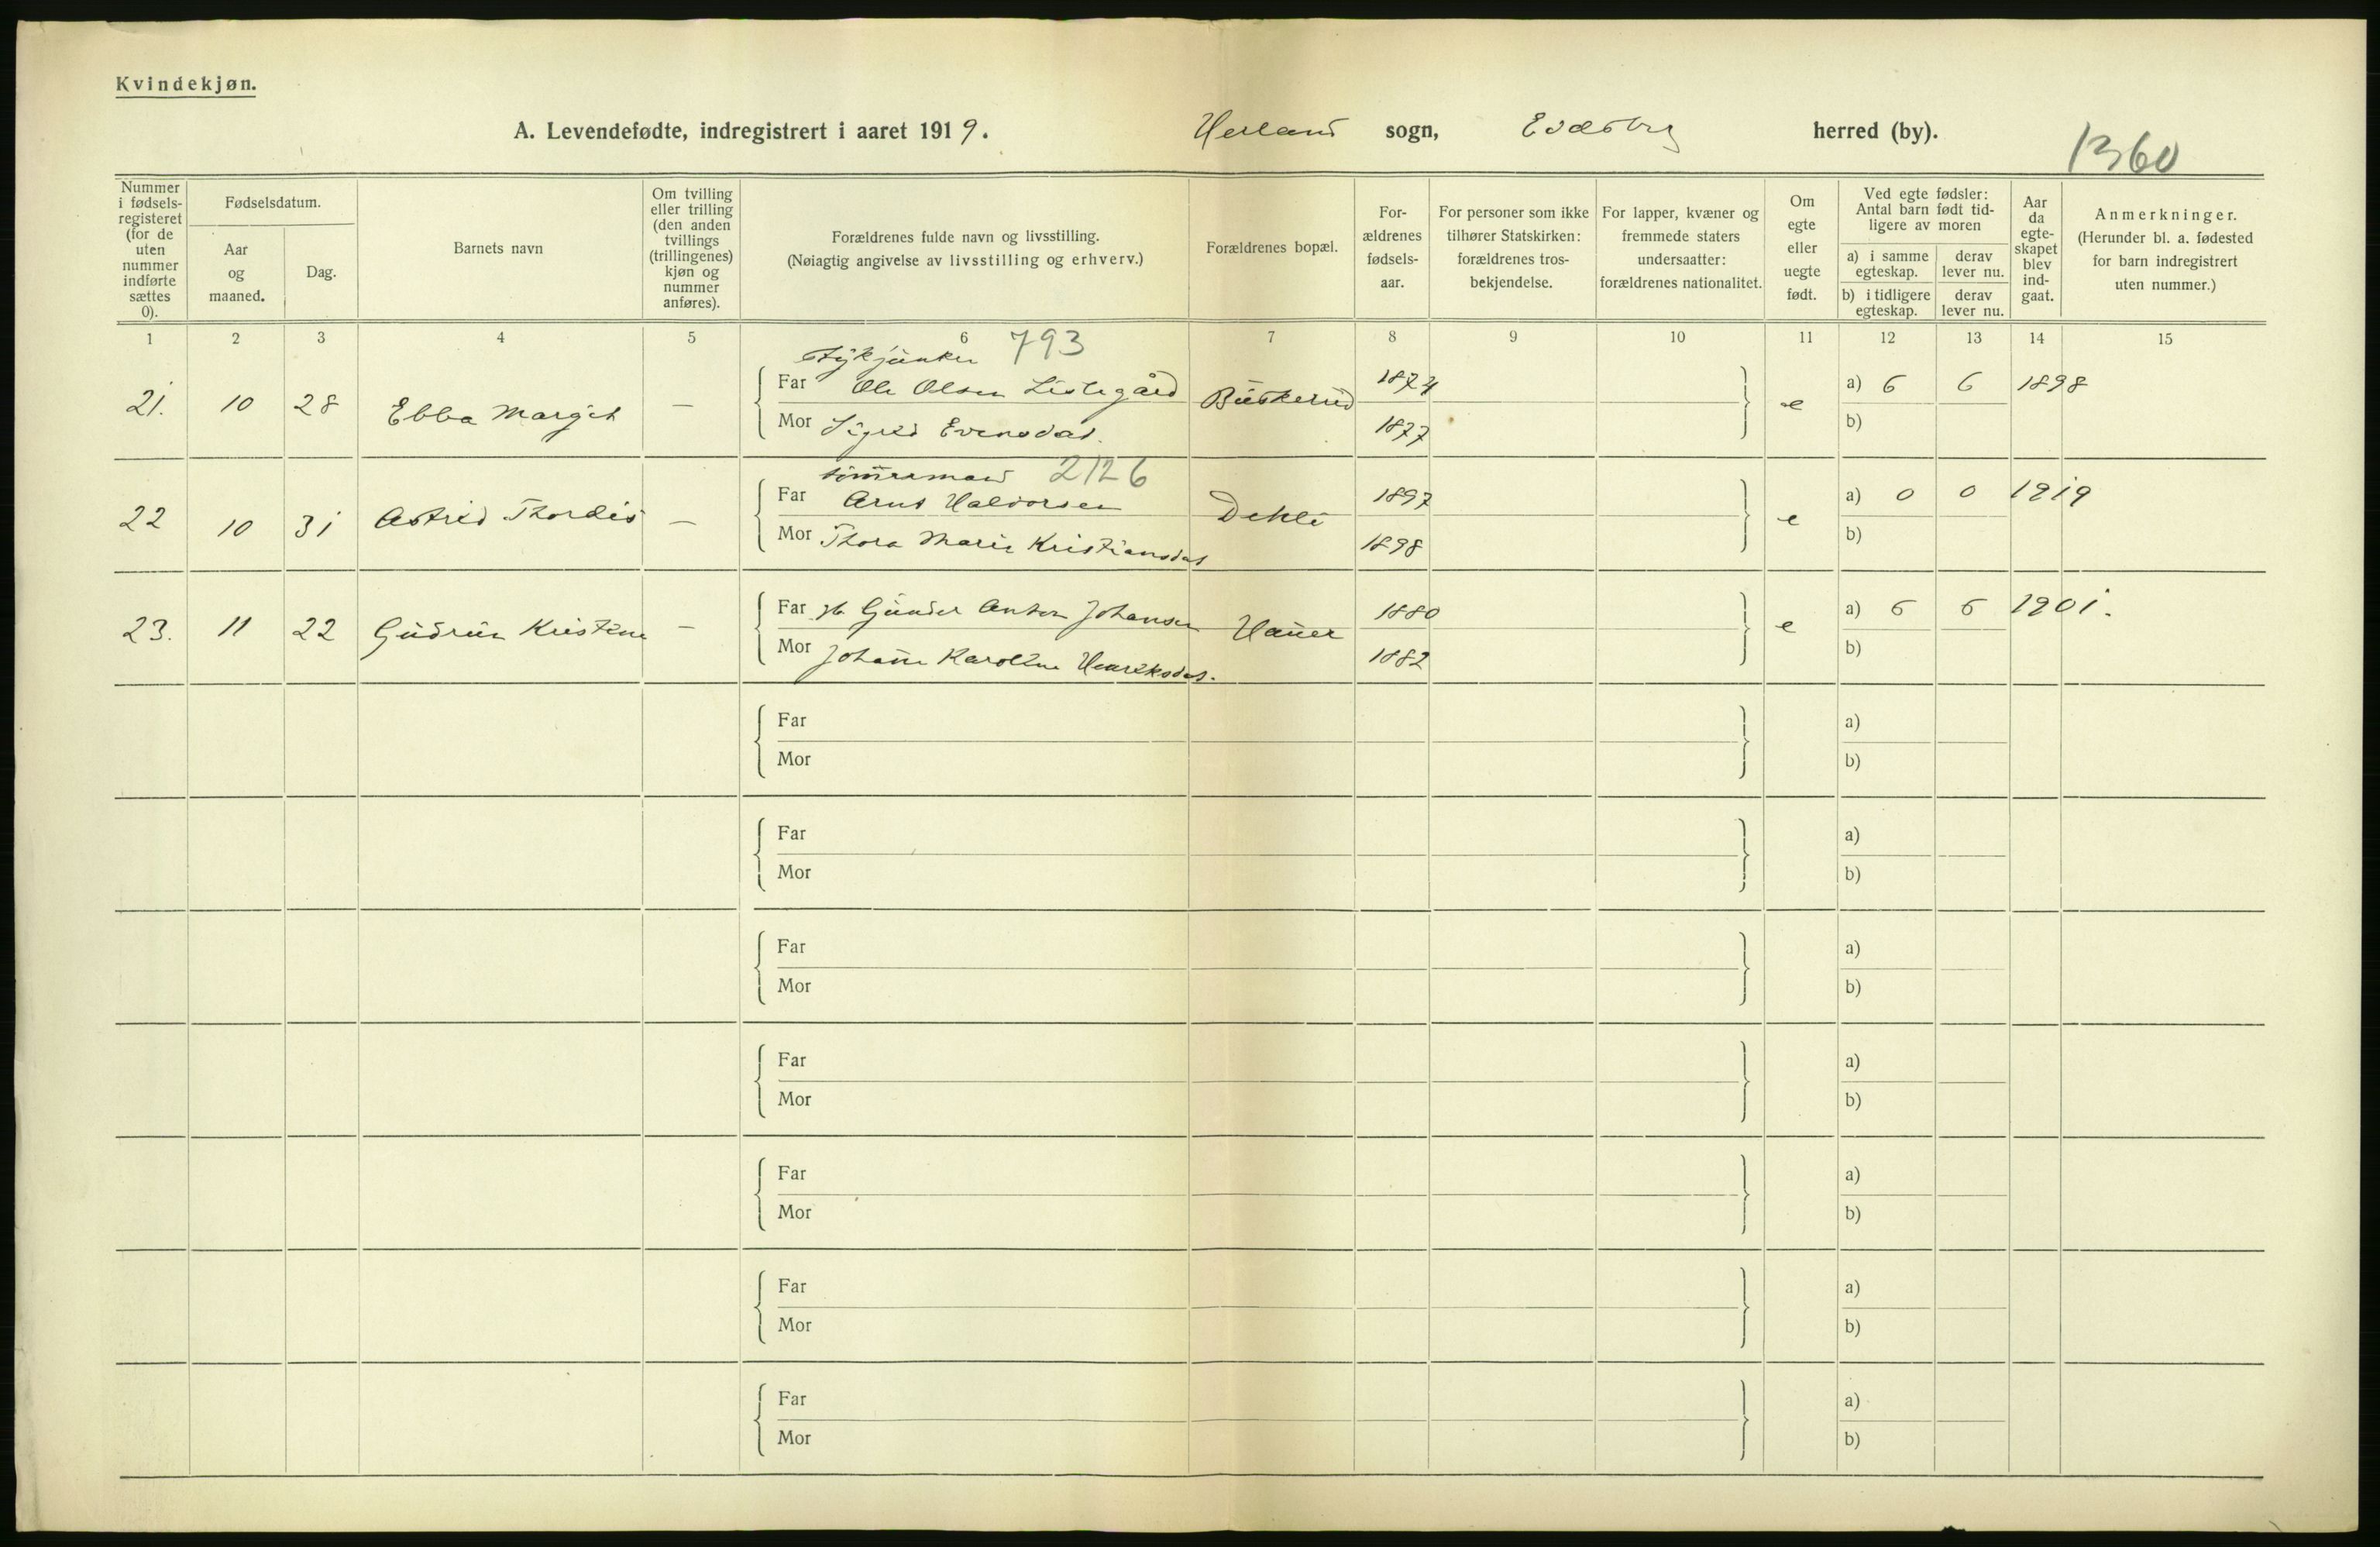 Kvindekjøn.
A. Levendefødte, indregistrert i aaret 1919. Herland sogn, Eidsberg herred (by).
1360
Nummer i fødsels-registeret (for de uten nummer indførte sættes 0).
Fødselsdatum.
Aar og maaned.
Dag.
Barnets navn
Om tvilling eller trilling (den anden tvillings (trillingenes) kjøn og nummer anføres).
Forældrenes fulde navn og livsstilling.
(Nøiagtig angivelse av livsstilling og erhverv.)
Forældrenes bopæl.
For-ældrenes fødsels-aar.
For personer som ikke tilhører Statskirken: forældrenes tros-bekjendelse.
For lapper, kvæner og fremmede staters undersaatter: forældrenes nationalitet.
Om egte eller uegte født.
Ved egte fødsler: Antal barn født tid-ligere av moren
a) i samme egteskap.
derav lever nu.
b) i tidligere egteskap.
derav lever nu.
Aar da egte-skapet blev ind-gaat.
Anmerkninger.
(Herunder bl. a. fødested for barn indregistrert uten nummer.)
1 2 3 4 5 6 7 8 9 10 11 12 13 14 15
793
21. 10 28 Ebba Margit — Far Ole Olsen Lislegård Buskerud 1874 e a) 6 6 1898
Mor Sigrid Evensdat. 1877 b)
tømmermand 2126
22 10 31 Astrid Thordis — Far Arnt Halvorsen Dehli 1897 e a) 0 0 1919
Mor Thora Marie Kristiansdat 1898 b)
23. 11 22 Gudrun Kristine — Far Gunder Anton Johansen Hauer 1880 e a) 6 6 1901.
Mor Johanne Karoline Henriksdat. 1882 b)
Far a)
Mor b)
Far a)
Mor b)
Far a)
Mor b)
Far a)
Mor b)
Far a)
Mor b)
Far a)
Mor b)
Far a)
Mor b)